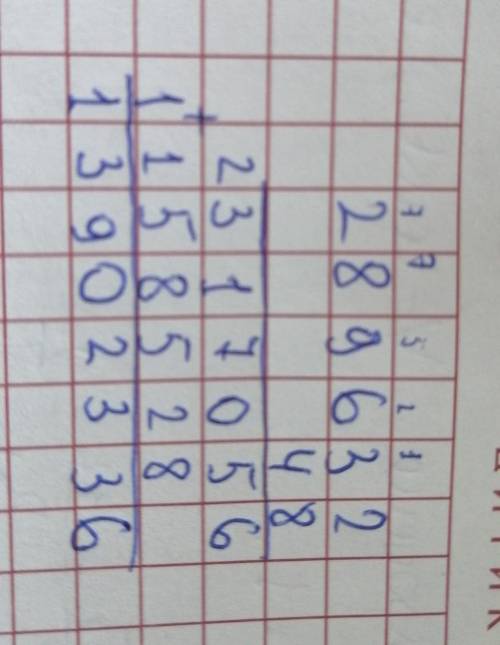 7 7 5 2 1
289632
48
2317056
+
1158528
13902336